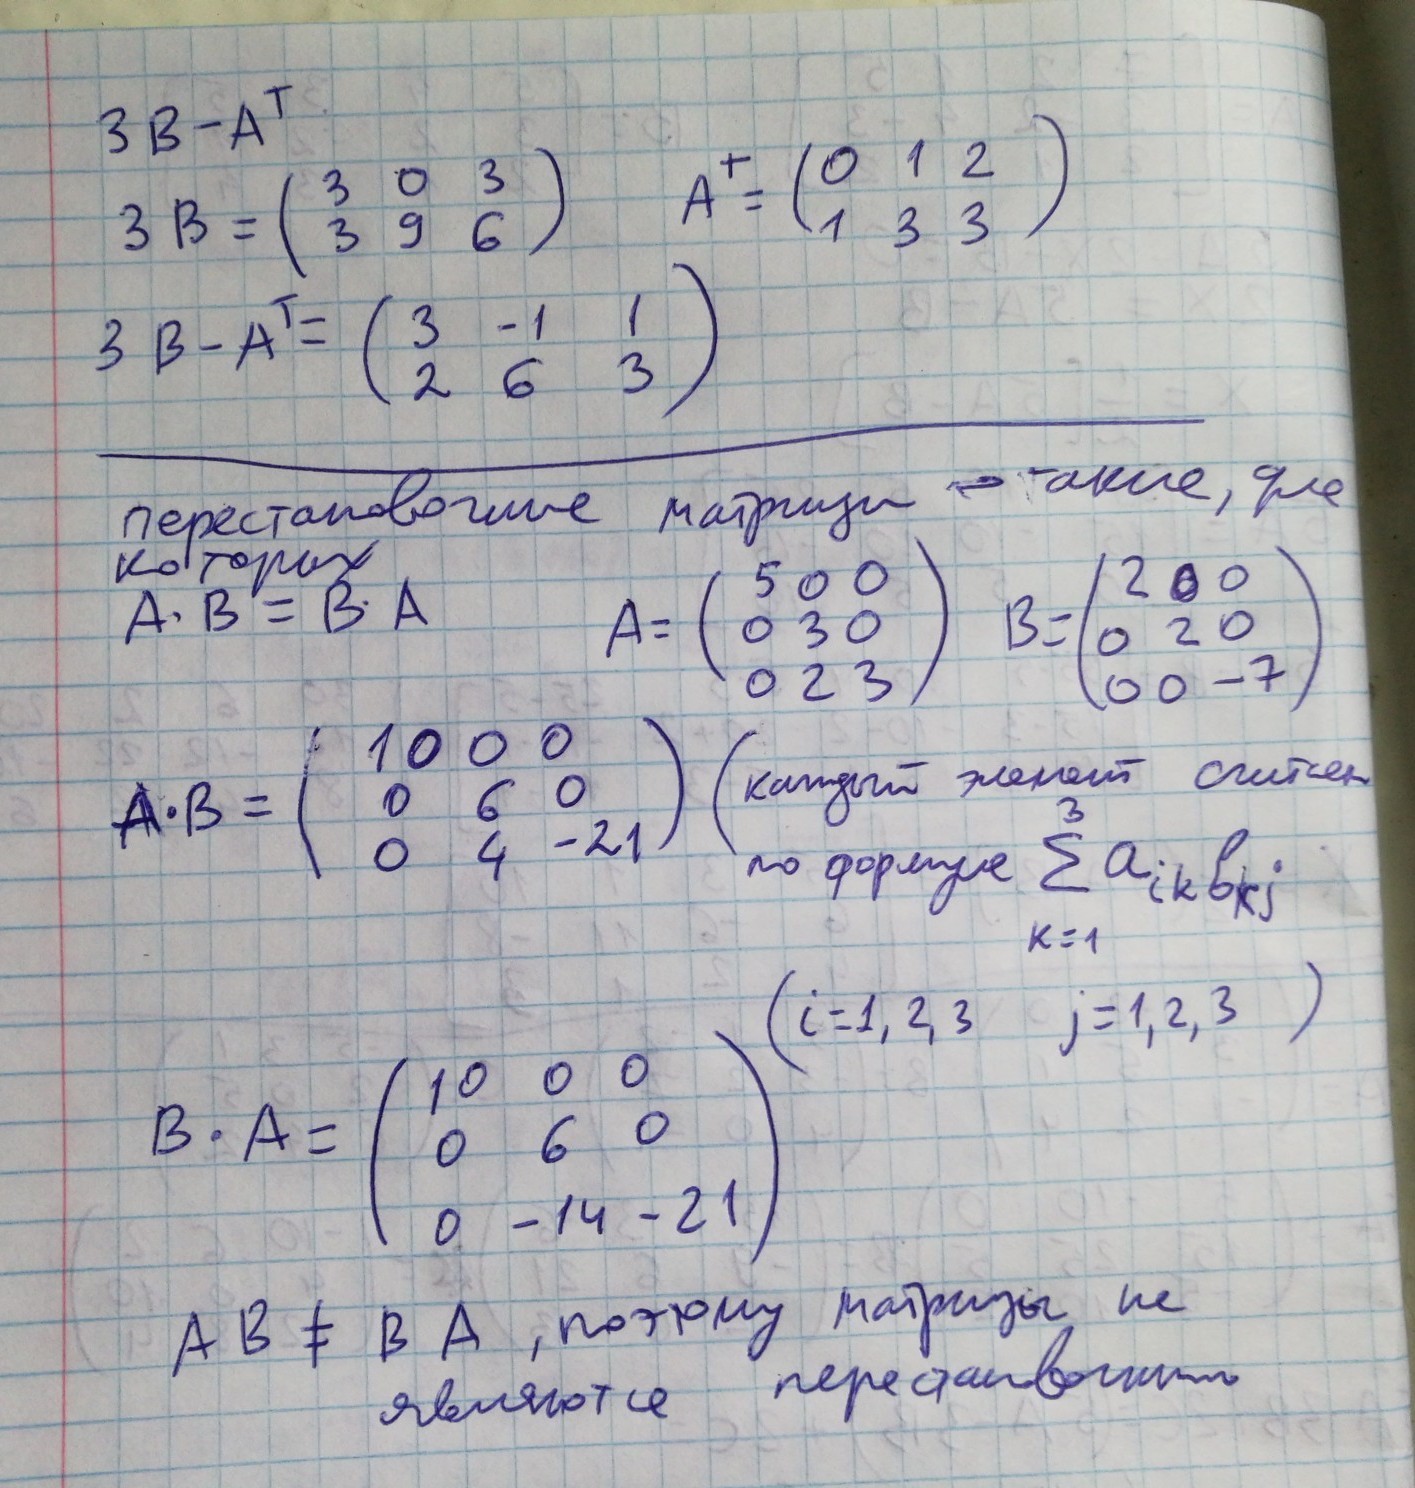 3B-Aᵀ
3B = (3 0 3
3 9 6)
Aᵀ = (0 1 2
1 3 3)
3B-Aᵀ = (3 -1 1
2 6 3)
перестановочные матрицы - такие, для
которых
A·B = B·A
A = (5 0 0
0 3 0
0 2 3)
B = (2 0 0
0 2 0
0 0 -7)
A·B = (10 0 0
0 6 0
0 4 -21)
(каждый элемент считаем
по формуле ∑ₖ₌₁³ aᵢₖ bₖⱼ
(i=1,2,3 j=1,2,3)
B·A = (10 0 0
0 6 0
0 -14 -21)
AB ≠ BA, поэтому матрицы не
являются перестановочными